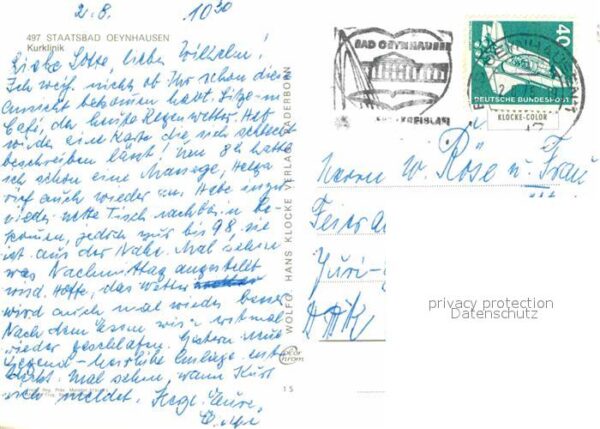 2.8. 10 30
497 STAATSBAD OEYNHAUSEN
Kurklinik
Liebe Lotte, lieber Wilhelm!
Ich weiß nicht, ob Ihr schon diese
Ansicht bekommen habt. Sitze im
Café, da heute Regenwetter.
wieder eine Karte die sich schlecht
beschreiben lässt! Um 8 h hatte
ich schon eine Massage, Helga
rief auch wieder an. Habe inzw.
wieder nette Tischnachbarin be-
kommen, jedoch nur bis 9.8, sie
ist aus der Nähe. Mal sehen
was Nachmittag angestellt
wird. Hoffe, das Wetter
wird auch mal wieder besser
Nach dem Essen wird erstmal
wieder geschlafen. Gestern neue
Gegend - herrliche Anlage ent-
deckt. Mal sehen, wann Kurt
sich meldet. Herzl. Eure
WOLFG. HANS KLOCKE VERLAG PADERBORN
color
chrom
15
BAD OEYNHAUSEN
40
DEUTSCHE BUNDESPOST
KLOCKE-COLOR
Herrn W. Röse u. Frau
privacy protection
Datenschutz